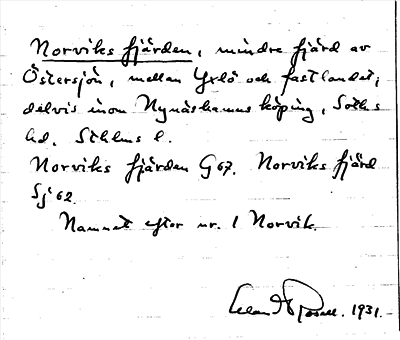 Norviks fjärden, mindre fjärd av
Östersjön, mellan Yxlö och fastlandet,
delvis inom Nynäshamns köping, Sotls
hd. Sthlms l.
Norviks fjärden G 67. Norviks fjärd
Sj 62.
Namnet efter nr. 1 Norvik.
1931.